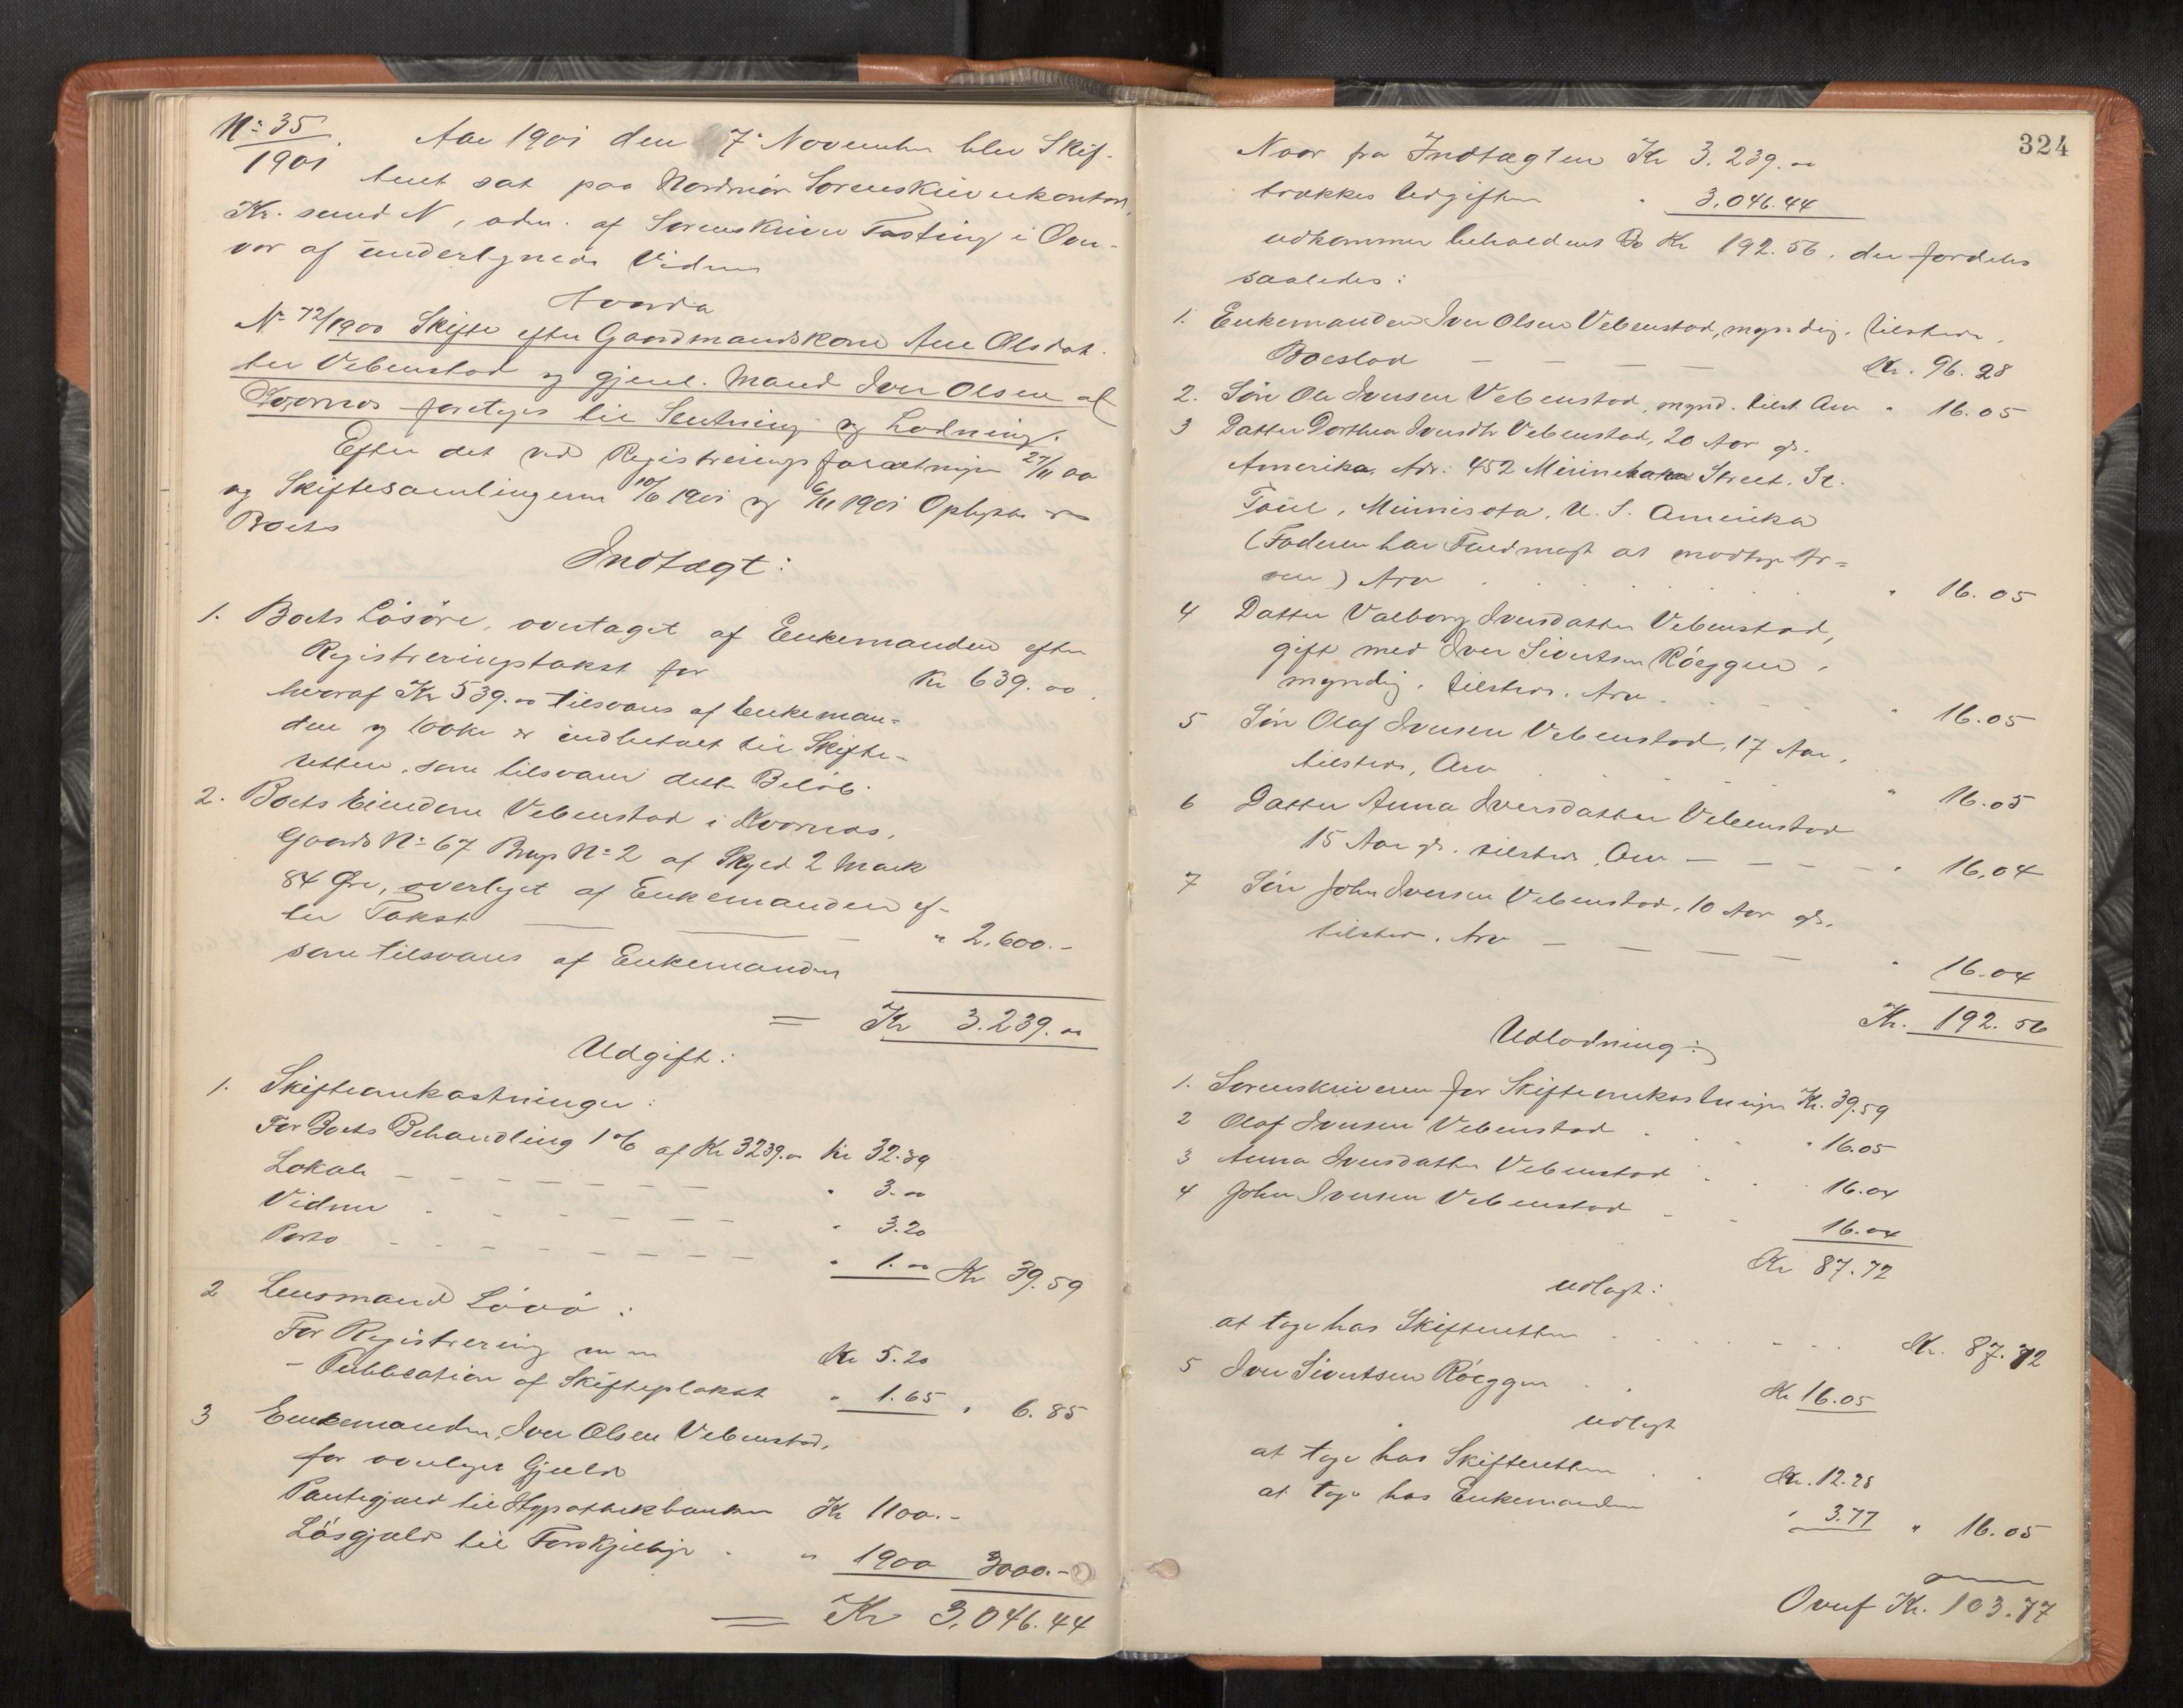 No 35/1901. Aar 1901 den 7. November blev Skif-
teret sat paa Nordmør Sorenskriverkontor,
Kr. sund N, adm. af Sorenskriver Fasting i Over-
vær af undertegnede Vidner
Hvorda
No 72/1900 Skifte efter Gaardmandskone Ane Olsdat-
ter Vebenstad og gjenl. Mand Iver Olsen af
Kvernes foretoges til Slutning og Lodning.
Efter det ved Registreringsforretningen 27/11 00
og Skiftesamlingerne 10/6 1901 og 6/11 1901 Oplyste er
Boets
Indtægt:
1. Boets Løsøre, overtaget af Enkemanden efter
Registreringstakst for Kr 639.00.
hvoraf Kr 539.00 tilsvares af Enkeman-
den og 100 Kr er indbetalt til Skifte-
retten, som tilsvarer dette Beløb.
2. Boets Eiendom Vebenstad i Kvernes,
Gaards No 67 Brugs No 2 af Skyld 2 Mark
84 Øre, overtaget af Enkemanden ef-
ter Takst — — — " 2,600.-
som tilsvares af Enkemanden
= Kr 3.239.00
Udgift:
1. Skifteomkostninger:
For Boets Behandling 1 % af Kr 3239.00 Kr 32.39
Lokale - - - - - - - " 3.00
Vidner - - - - - - - " 3.20
Porto - - - - - - - - " 1.00 Kr 39.59
2 Lensmand Løvø:
For Registrering m m Kr 5.20
- Publication af Skifteplakat " 1.65 " 6.85
3 Enkemanden, Iver Olsen Vebenstad,
for overtagen Gjæld
Pantegjæld til Hypothekbanken Kr 1100.-
Løsgjæld til Forskjellige - " 1900 3000.-
= Kr 3.046.44
324
Naar fra Indtægten Kr 3.239.00
trækkes Udgiften " 3.046.44
udkommer behol­dent Bo Kr 192.56, der fordeles
saaledes:
1. Enkemanden Iver Olsen Vebenstad, myndig, tilstede,
Boeslod — — — Kr. 96.28
2. Søn Ole Iversen Vebenstad, mynd. tilst. Arv " 16.05
3 Datter Dorthea Iversdtr Vebenstad, 20 Aar gl.
Amerika, Adr: 452 Minnehaha Street. St.
Paul, Minnisota, U. S. Amerika
(Faderen har Fuldmagt at modtage Ar-
ven) Arv . . . . . " 16.05
4 Datter Valborg Iversdatter Vebenstad,
gift med Iver Sivertsen Røeggen,
myndig, tilstede. Arv - - - " 16.05
5 Søn Olaf Iversen Vebenstad, 17 Aar,
tilstede, Arv . . . " 16.05
6 Datter Anna Iversdatter Vebenstad
15 Aar gl. tilstede, Arv — — — " 16.04
7 Søn John Iversen Vebenstad, 10 Aar gl.
tilstede, Arv — — — — " 16.04
Kr. 192.56
Udlodning:
1. Sorenskriveren for Skifteomkostninger Kr. 39.59
2 Olaf Iversen Vebenstad . . . " 16.05
3 Anna Iversdatter Vebenstad . . 16.04
4 John Iversen Vebenstad - - 16.04
Kr 87.72
udlagt:
at tage hos Skifteretten . . . . . Kr. 87.72
5 Iver Sivertsen Røeggen . . Kr 16.05
udlagt
at tage hos Skifteretten . . Kr. 12.28
at tage hos Enkemanden " 3.77 " 16.05
Overf Kr. 103.77